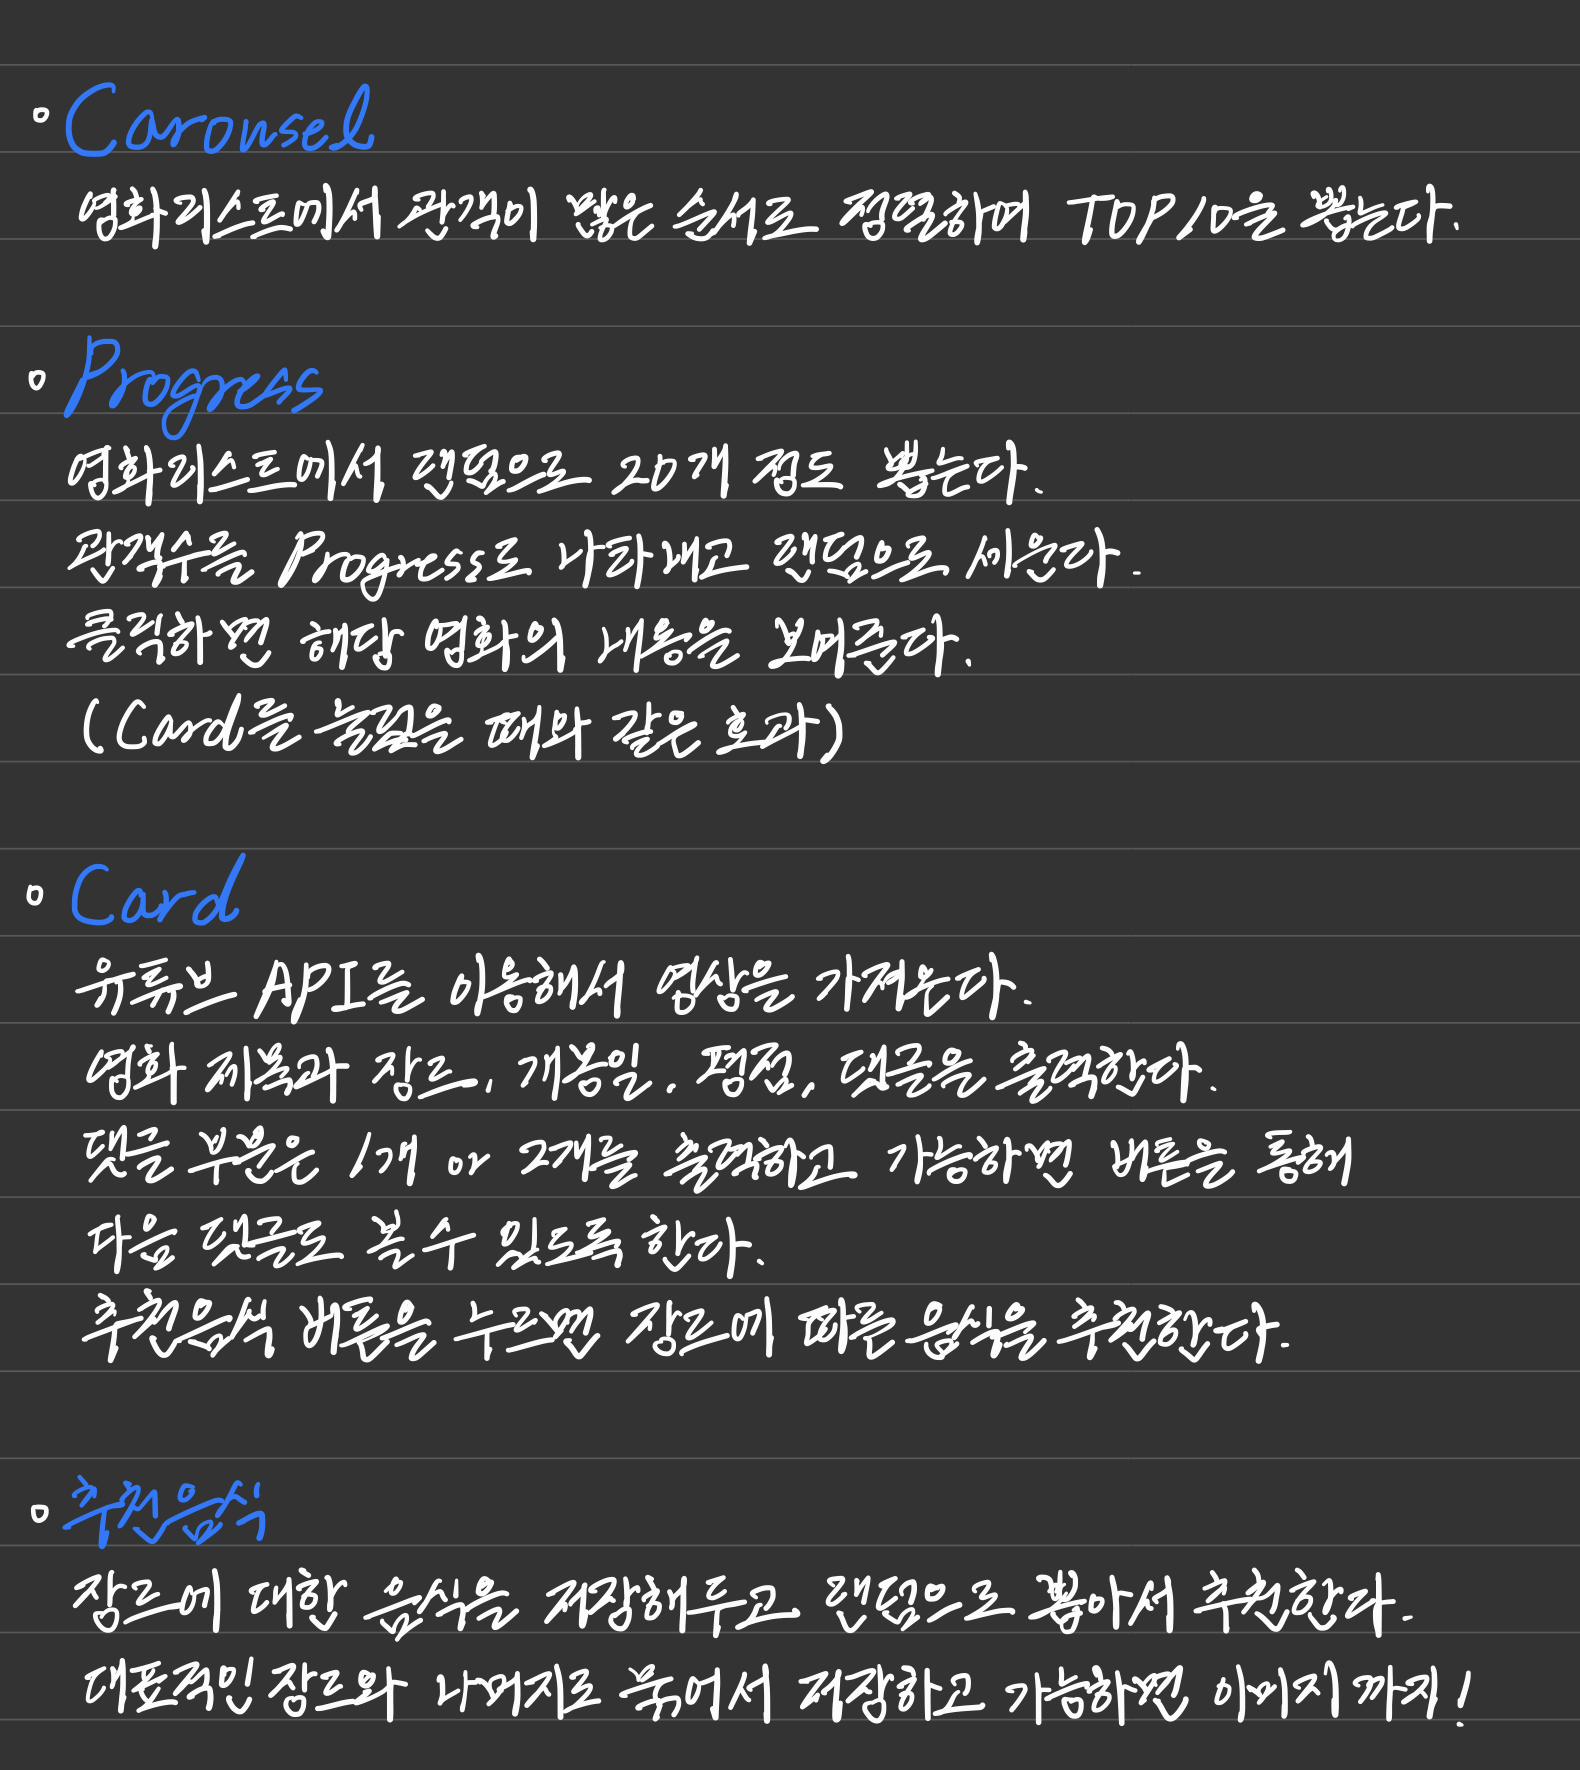 Carousel
영화리스트에서 관객이 많은 순서로 정렬하여 TOP10을 뽑는다.
Progress
영화리스트에서 랜덤으로 20개 정도 뽑는다.
관객수를 Progress로 나타내고 랜덤으로 세운다.
클릭하면 해당 영화의 내용을 보여준다.
(Card를 눌렀을 때와 같은 효과)
Card
유튜브 API를 이용해서 영상을 가져온다.
영화 제목과 장르, 개봉일, 평점, 댓글은 출력한다.
댓글 부분은 1개 or 2개를 출력하고 가능하면 버튼을 통해
다음 댓글도 볼 수 있도록 한다.
추천음식 버튼을 누르면 장르에 따른 음식을 추천한다.
추천음식
장르에 대한 음식을 저장해두고 랜덤으로 뽑아서 추천한다.
대표적인 장르와 나머지로 묶어서 저장하고 가능하면 이미지까지!